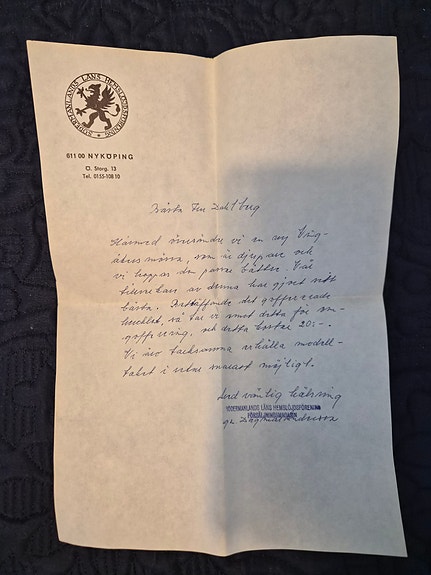 SÖDERMANLANDS LÄNS HEMSLÖJDSFÖRENING
611 00 NYKÖPING
Ö. Storg. 13
Tel. 0155-108 10
Bästa Fru Dahlberg
Härmed översända vi en ny
mössa, som är djupare och
vi hoppas den passar bättre. Vår
tillverkare av denna har gjort sitt
bästa. Beträffande det goffrerade
huvklädet, så tar vi emot detta för om-
goffrering, och detta kostar 20:-.
Vi äro tacksamma erhålla modell-
tabt i retur snarast möjligt.
Med vänlig hälsning
SÖDERMANLANDS LÄNS HEMSLÖJDSFÖRENING
FÖRSÄLJNINGSMAGASIN